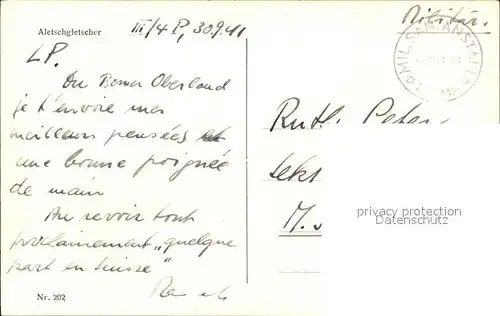 Aletschgletscher
III/4 P, 30.9.41
Militär.
MIL. SAN. ANSTALT
L.P.
Du Berner Oberland
je t'envoie mes
meilleurs pensées et
une bonne poignée
de main
Au revoir tout
prochainement „quelque
part en Suisse"
Nr. 202
privacy protection
Datenschutz